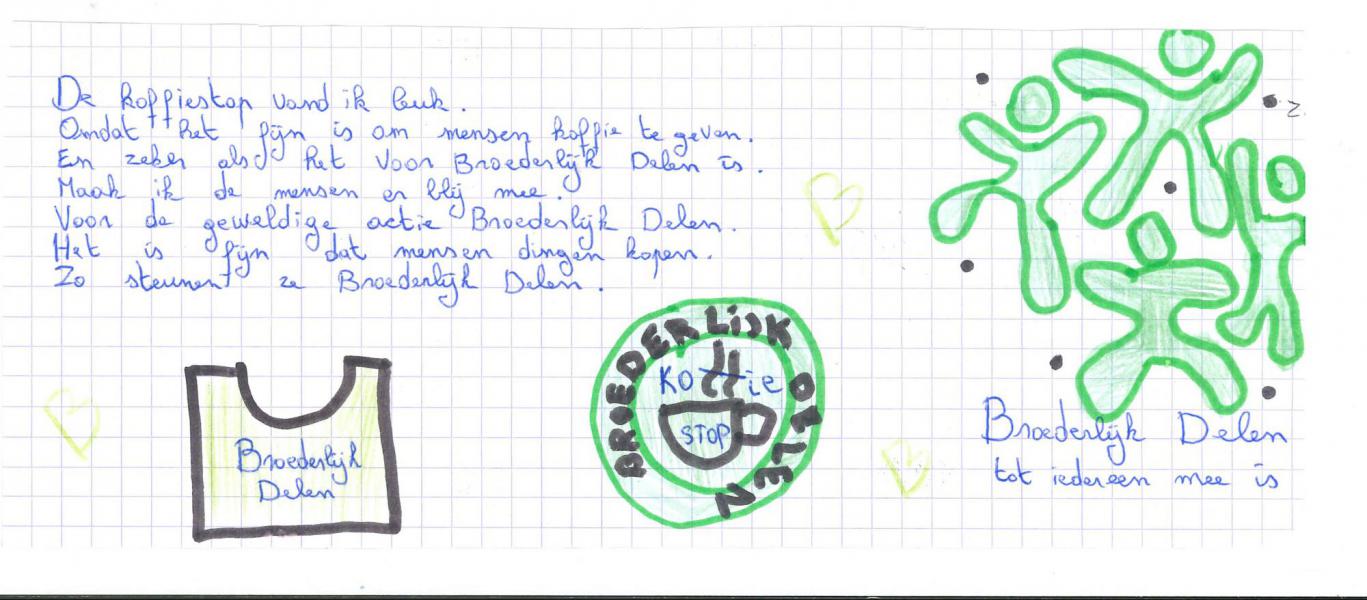 De koffiestop vond ik leuk.
Omdat het fijn is om mensen koffie te geven.
En zeker als het voor Broederlijk Delen is.
Maak ik de mensen er blij mee.
Voor de geweldige actie Broederlijk Delen.
Het is fijn dat mensen dingen kopen.
Zo steunen ze Broederlijk Delen.
Broederlijk
Delen
BROEDERLIJK DELEN
Koffie
STOP
Broederlijk Delen
tot iedereen mee is